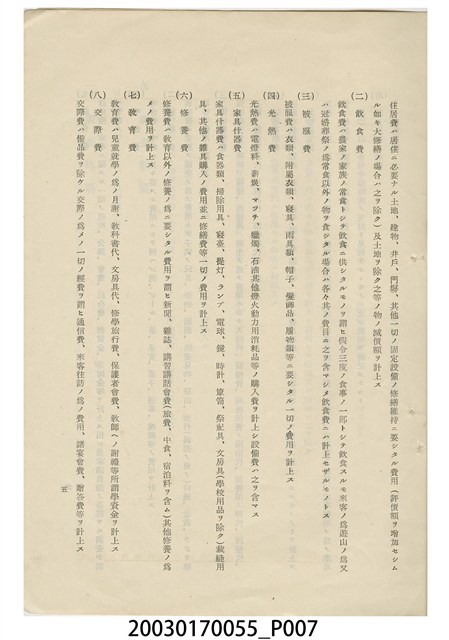 住居費ハ居住ニ必要ナル土地、建物、井戸、門塀、其他一切ノ固定設備ノ修繕維持ニ要シタル費用(評價額ヲ増加セシム
ル如キ大修繕ノ場合ハ之ヲ除ク)及土地ヲ除ク之等ノ物ノ減價額ヲ計上ス
(二) 飲食費
飲食費ハ農家ノ家族ノ常食トシテ飲食ニ供シタルモノヲ謂ヒ假令三度ノ食事ノ一部トシテ飲食スルモ來客ノ爲遊山ノ爲又
ハ冠婚葬祭ノ爲常食以外ノ物ヲ食シタル場合ハ各々其ノ費目ニ之ヲ含マシメ飲食費ニハ計上セザルモノトス
(三) 被服費
被服費ハ衣類、附屬衣類、寢具、雨具類、帽子、髮飾品、履物類等ニ要シタル一切ノ費用ヲ計上ス
(四) 光熱費
光熱費ハ電燈料、薪炭、マツチ、蠟燭、石油其他燈火動力用消耗品等ノ購入費ヲ計上シ設備費ハ之ヲ含マス
(五) 家具什器費
家具什器費ハ食器類、掃除用具、寢臺、提灯、ランプ、電球、鏡、時計、簞笥、祭祀具、文房具(學校用品ヲ除ク)裁縫用
具、其他ノ雜具購入ノ費用並ニ修繕費等一切ノ費用ヲ計上ス
(六) 修養費
修養費ハ敎育以外ノ修養ノ爲ニ要シタル費用ヲ謂ヒ新聞、雜誌、講習講話會費(旅費、中食、宿泊料ヲ含ム)其他修養ノ爲
メノ費用ヲ計上ス
(七) 敎育費
敎育費ハ兒童就學ノ爲ノ月謝、敎科書代、文房具代、修學旅行費、保護者會費、敎師ヘノ謝禮等所謂學資金ヲ計上ス
(八) 交際費
交際費ハ備品費ヲ除ケル交際ノ爲メノ一切ノ經費ヲ謂ヒ通信費、來客往訪ノ爲ノ費用、諸宴會費、贈答費等ヲ計上ス
五
20030170055_P007